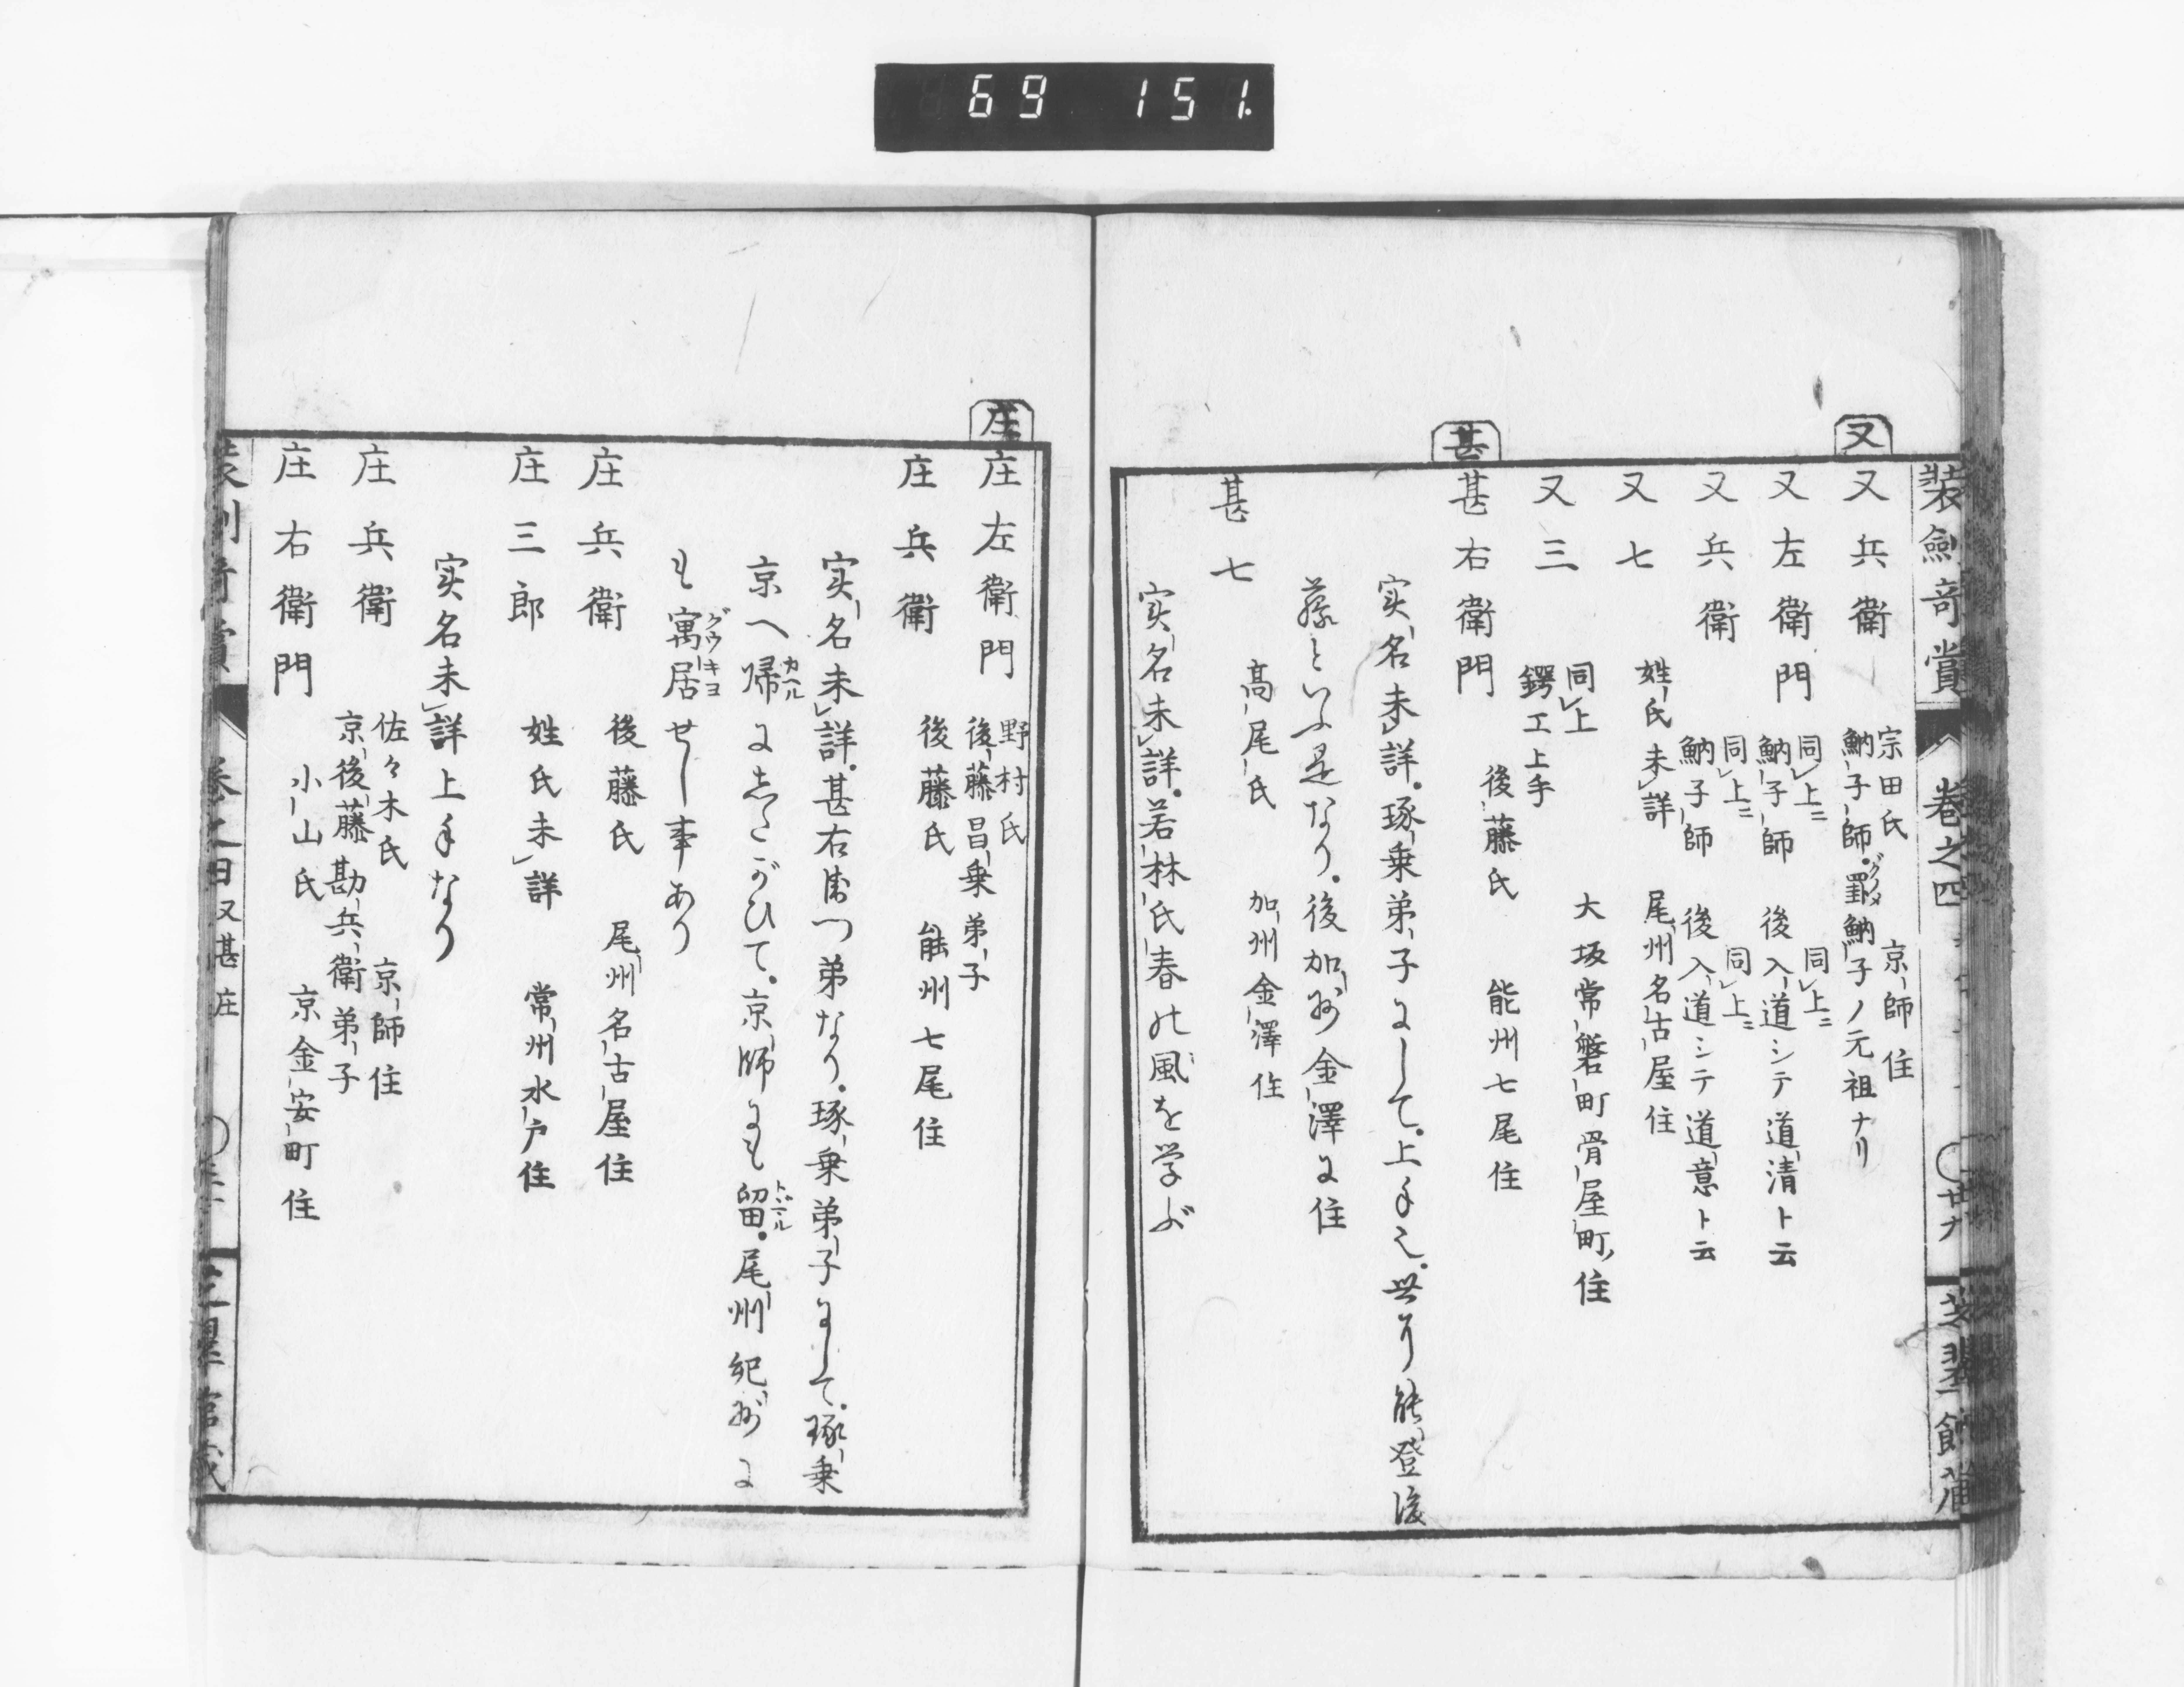 69 151.
装劍奇賞 巻之四
又
又兵衛 宗田氏 京師住
魶子師。罫魶子ノ元祖ナリ
又左衛門 同上ニ 同上ニ
魶子師 後入道シテ道清ト云
又兵衛 同上ニ 同上ニ
魶子師 後入道シテ道意ト云
又七 姓氏未詳 尾州名古屋住
又三 同上 大坂常磐町骨屋町住
鍔工上手
甚
甚右衛門 後藤氏 能州七尾住
実名未詳。琢乗弟子にして。上手也。世に能登後
藤といふ是なり。後加州金澤に住
甚七 高尾氏 加州金澤住
実名未詳。若林氏春の風を学ぶ
庄
庄左衛門 野村氏
後藤昌乗弟子
庄兵衛 後藤氏 能州七尾住
実名未詳。甚右衛門弟なり。琢乗弟子にして。琢乗
京へ帰カヘルにしたがひて。京師にも留トヾマル。尾州紀州に
も寓居グウキヨせし事あり
庄兵衛 後藤氏 尾州名古屋住
庄三郎 姓氏未詳 常州水戸住
実名未詳上手なり
庄兵衛 佐々木氏 京師住
京後藤勘兵衛弟子
庄右衛門 小山氏 京金安町住
又甚庄